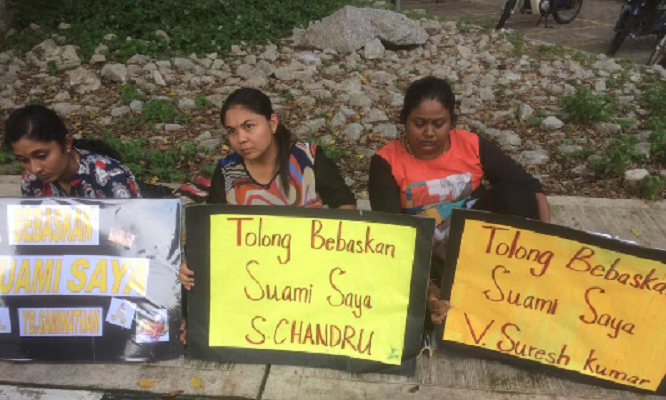 BEBASKAN
SUAMI SAYA
YB.GAMINATHAN
Tolong Bebaskan
Suami Saya
S. CHANDRU
Tolong Bebaska
Suami Saya
V. Suresh kumar